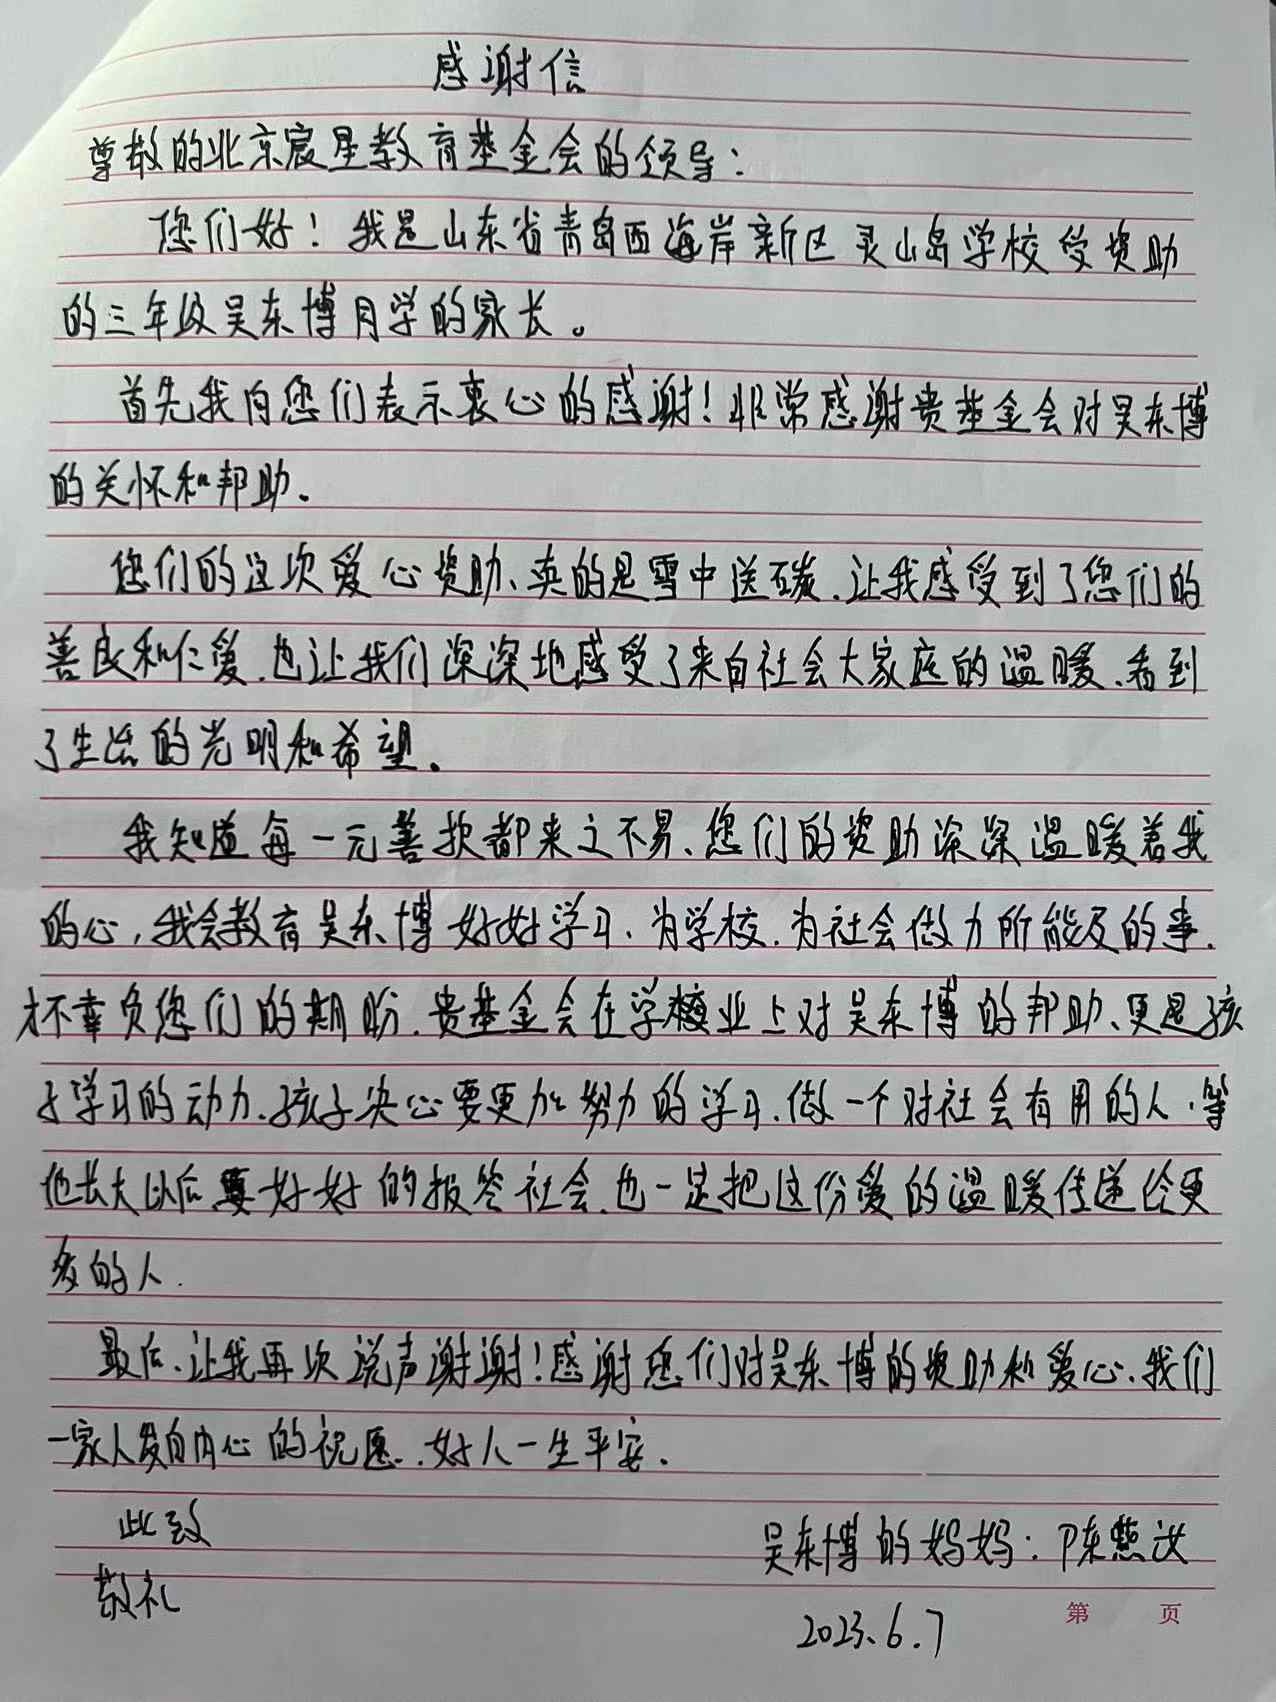 感谢信
尊敬的北京宸星教育基金会的领导：
您们好！我是山东省青岛西海岸新区灵山岛学校受资助
的三年级吴东博同学的家长。
首先我向您们表示衷心的感谢！非常感谢贵基金会对吴东博
的关怀和帮助.
您们的这次爱心资助、真的是雪中送碳.让我感受到了您们的
善良和仁爱.也让我们深深地感受了来自社会大家庭的温暖、看到
了生活的光明和希望.
我知道每一元善款都来之不易、您们的资助深深温暖着我
的心,我会教育吴东博好好学习、为学校.为社会做力所能及的事.
才不幸负您们的期盼.贵基金会在学业上对吴东博的帮助、更是孩
子学习的动力.孩子决心要更加努力的学习.做一个对社会有用的人.等
他长大以后要好好的报答社会.也一定把这份爱的温暖传递给更
多的人.
最后、让我再次说声谢谢!感谢您们对吴东博的资助和爱心.我们
一家人发自内心的祝愿..好人一生平安.
此致
吴东博的妈妈：陈慧汝
敬礼
2023.6.7
第 页